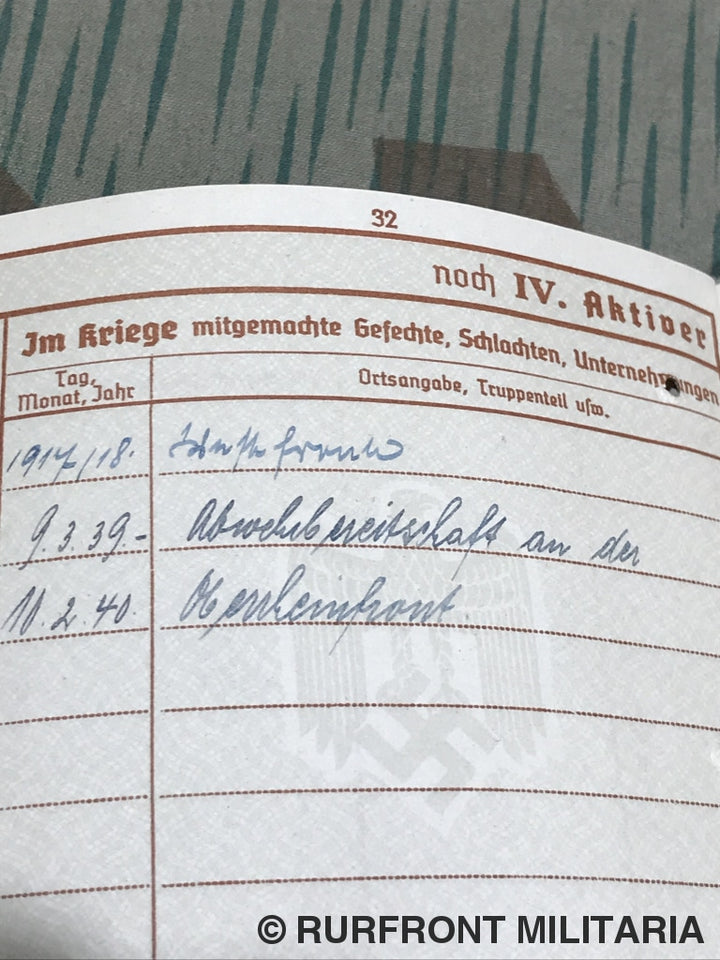 32
noch IV. Aktiver
Im Kriege mitgemachte Gefechte, Schlachten, Unternehmungen
Tag, Monat, Jahr
Ortsangabe, Truppenteil usw.
1917/18. Westfront
9.3.39.- Abwehrbereitschaft an der
10.2.40. Oberrheinfront.
© RURFRONT MILITARIA